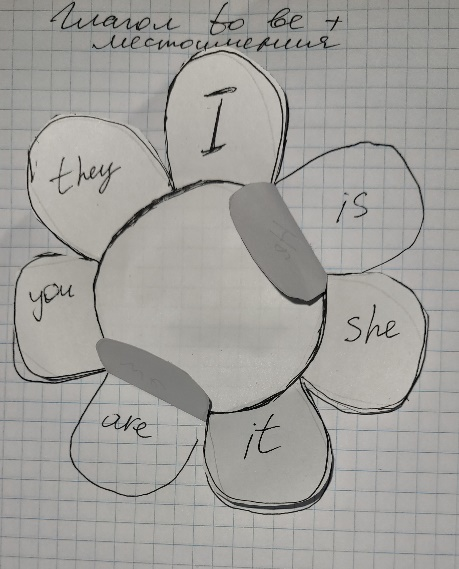 Глагол to be +
местоимения
I
is
she
it
are
you
they